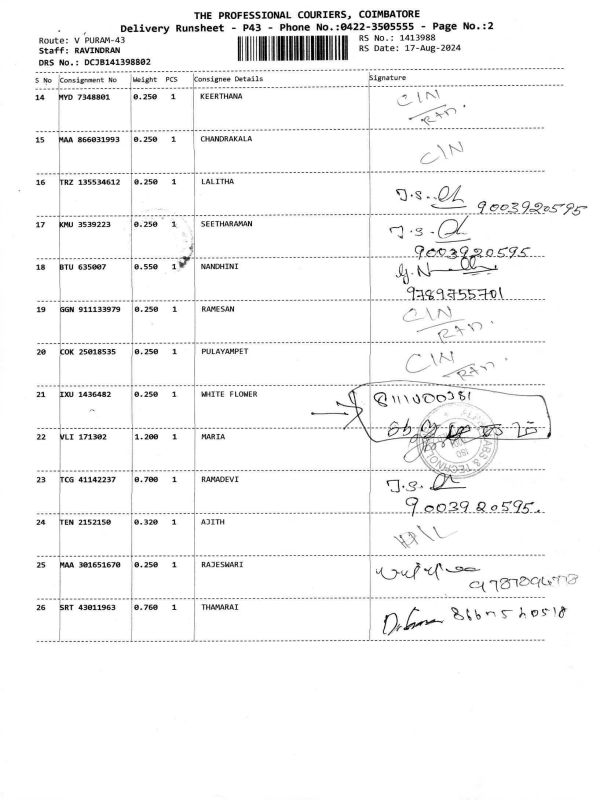 THE PROFESSIONAL COURIERS, COIMBATORE
Delivery Runsheet - P43 - Phone No.:0422-3505555 - Page No.:2
Route: V PURAM-43 RS No.: 1413988
Staff: RAVINDRAN RS Date: 17-Aug-2024
DRS No.: DCJB141398802
S No Consignment No Weight PCS Consignee Details Signature
14 MYD 7348801 0.250 1 KEERTHANA CIN
15 MAA 866031993 0.250 1 CHANDRAKALA CIN
16 TRZ 135534612 0.250 1 LALITHA J.S. 9003920595
17 KMU 3539223 0.250 1 SEETHARAMAN J.S. 9003920595
18 BTU 635007 0.550 1 NANDHINI G.N 9789755701
19 GGN 911133979 0.250 1 RAMESAN CIN
20 COK 25018535 0.250 1 PULAYAMPET CIN
21 IXU 1436482 0.250 1 WHITE FLOWER
22 VLI 171302 1.200 1 MARIA
23 TCG 41142237 0.700 1 RAMADEVI J.S. 9003920595.
24 TEN 2152150 0.320 1 AJITH
25 MAA 301651670 0.250 1 RAJESWARI
26 SRT 43011963 0.760 1 THAMARAI